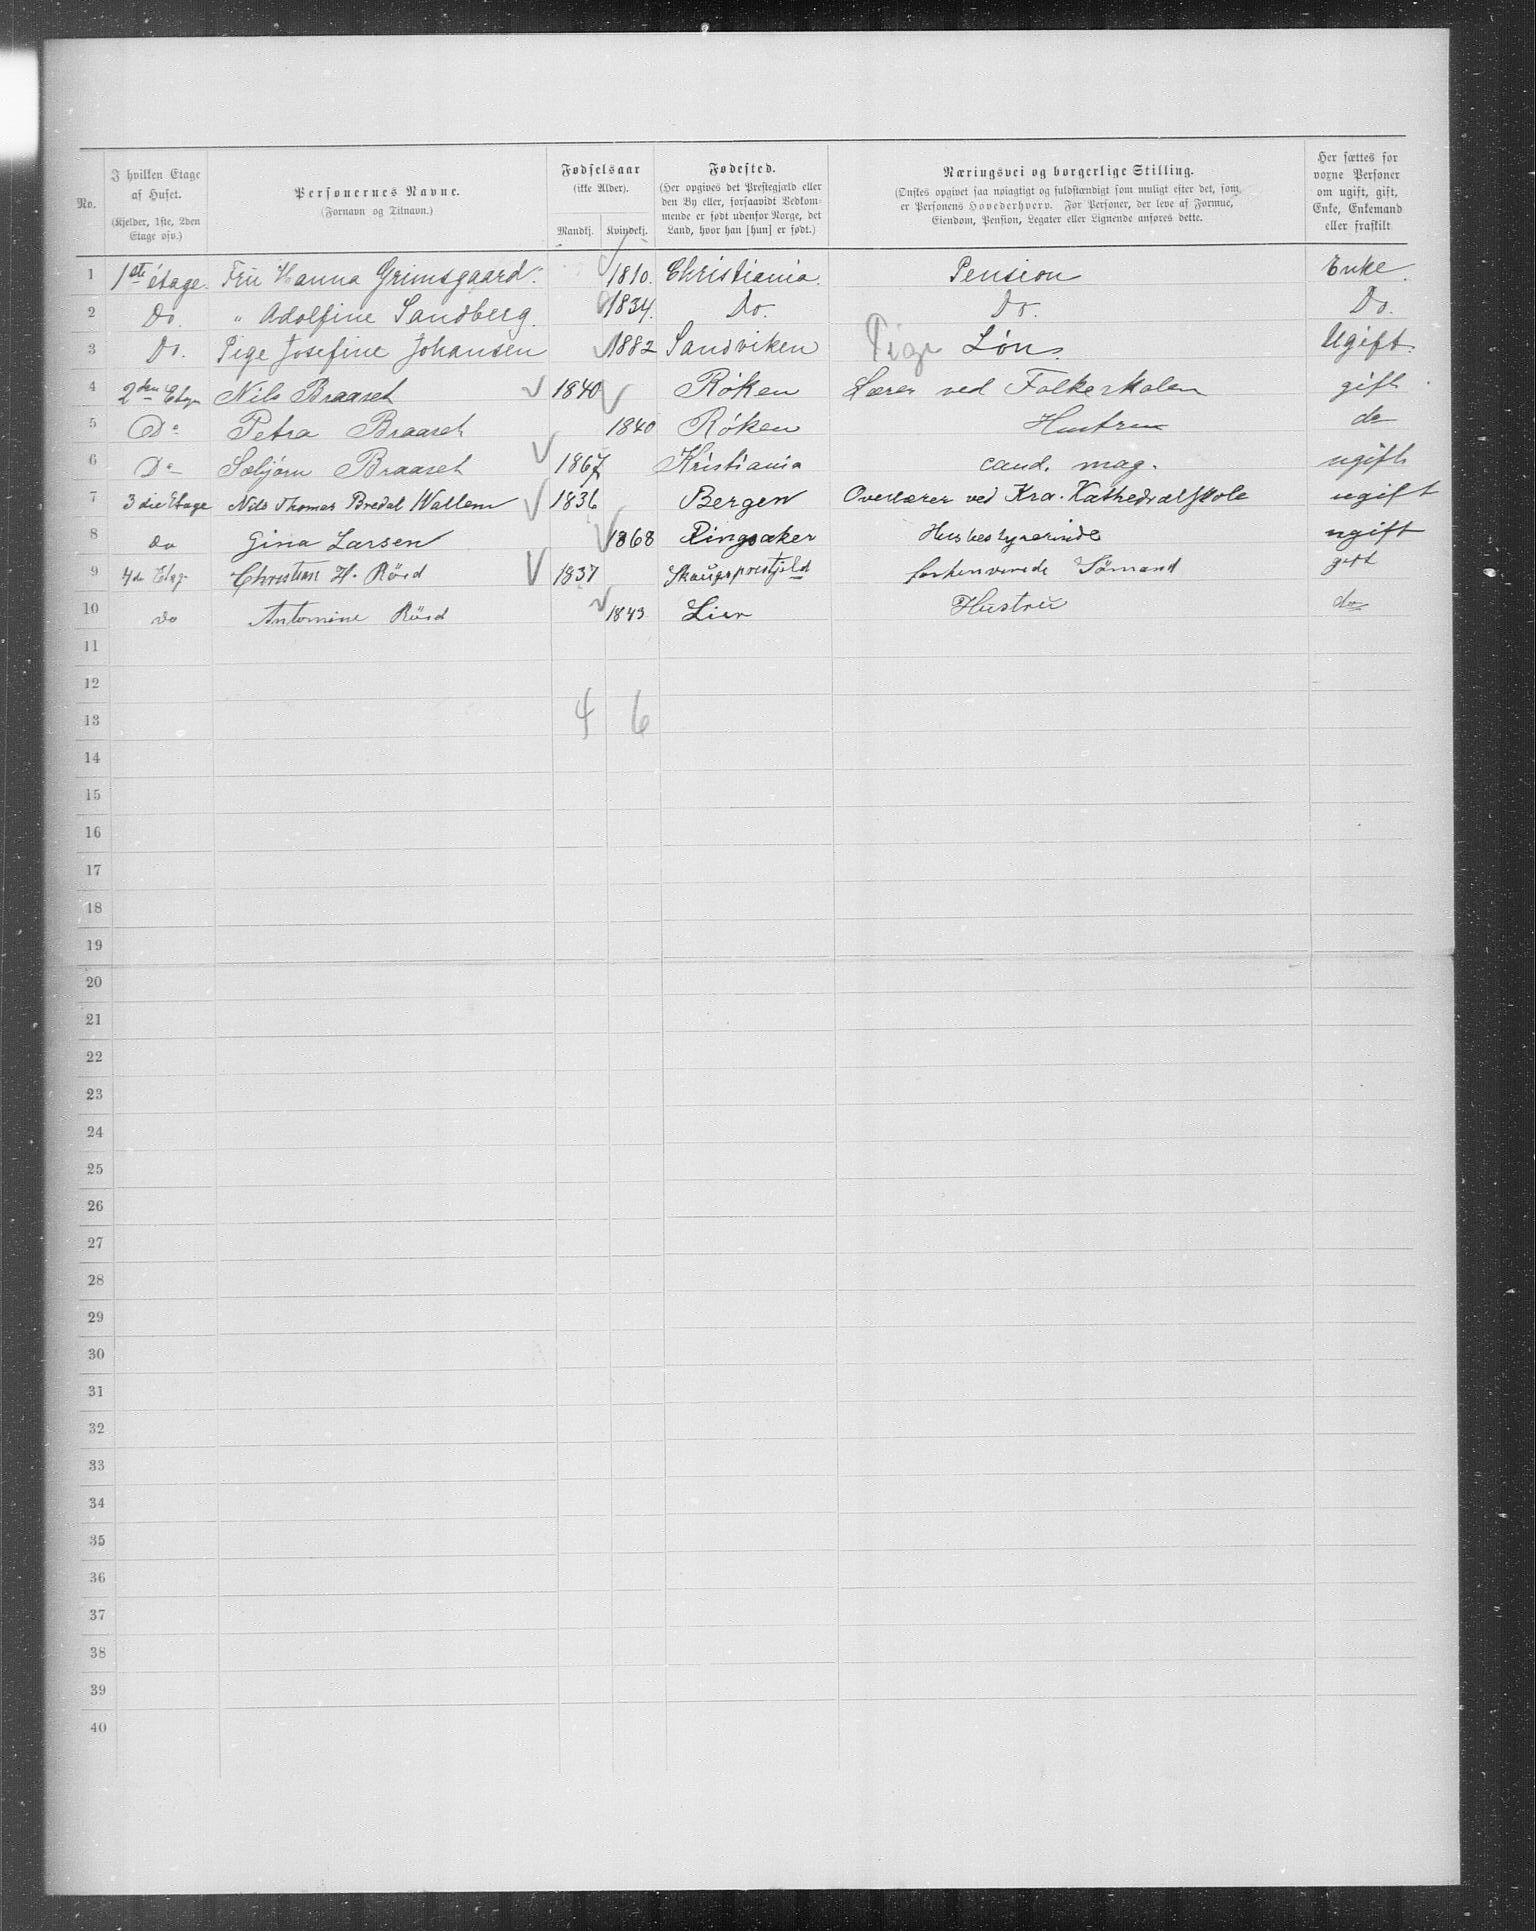 No. | I hvilken Etage af Huset. (Kjelder, 1ste, 2den Etage osv.) | Personernes Navne. (Fornavn og Titnavn.) | Fødselsaar (ikke Alder). Mandkj. | Kvindekj. | Fødested. (Her opgives det Prestegjæld eller den By eller, forsaavidt Vedkommende er født udenfor Norge, det Land, hvor han [hun] er født.) | Næringsvei og borgerlige Stilling. (Ønskes opgivet saa nøiagtigt og fuldstændigt som muligt efter det, som er Personens Hovederhverv. For Personer, der leve af Formue, Eiendom, Pension, Legater eller Lignende anføres dette. | Her sættes for voxne Personer om ugift, gift, Enke, Enkemand eller fraskilt
1 | 1ste étage. | Fru Hanna Grimsgaard. | | 1810. | Christiania. | Pension | Enke.
2 | Do. | " Adolfine Sandberg. | | 1834. | Do. | Do. | Do.
3 | Do. | Pige Josefine Johansen | | 1882 | Sandviken | Pige Løn. | Ugift.
4 | 2den Etage | Nils Braaset | 1840 | | Røken | Lærer ved Folkeskolen | gift
5 | Do | Petra Braaset | | 1840 | Røken | Hustru | do
6 | Do | Sæbjørn Braaset | 1867 | | Kristiania | cand. mag. | ugift
7 | 3die Etage | Nils Thomas Bredal Wallem | 1836 | | Bergen | Overlærer ved Kra. Kathedralskole | ugift
8 | do | Gina Larsen | | 1868 | Ringsaker | Husbestyrerinde | ugift
9 | 4de Etag. | Christian H. Röed | 1837 | | Skaugsprestjild | forhenverede Sömand | gift
10 | do | Antomine Röed | | 1843 | Lier | Hustru | do
11
12
13 | | | 4 | 6
14
15
16
17
18
19
20
21
22
23
24
25
26
27
28
29
30
31
32
33
34
35
36
37
38
39
40